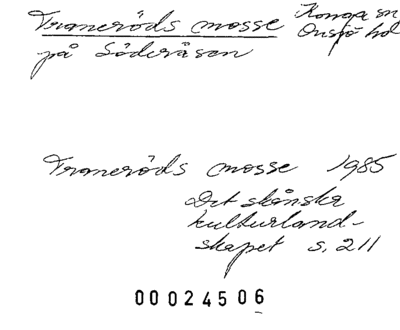 Traneröds mosse Konga sn
på Söderåsen Onsjö hd
Traneröds mosse 1985
Det skånska
kulturland-
skapet s. 211
00024506